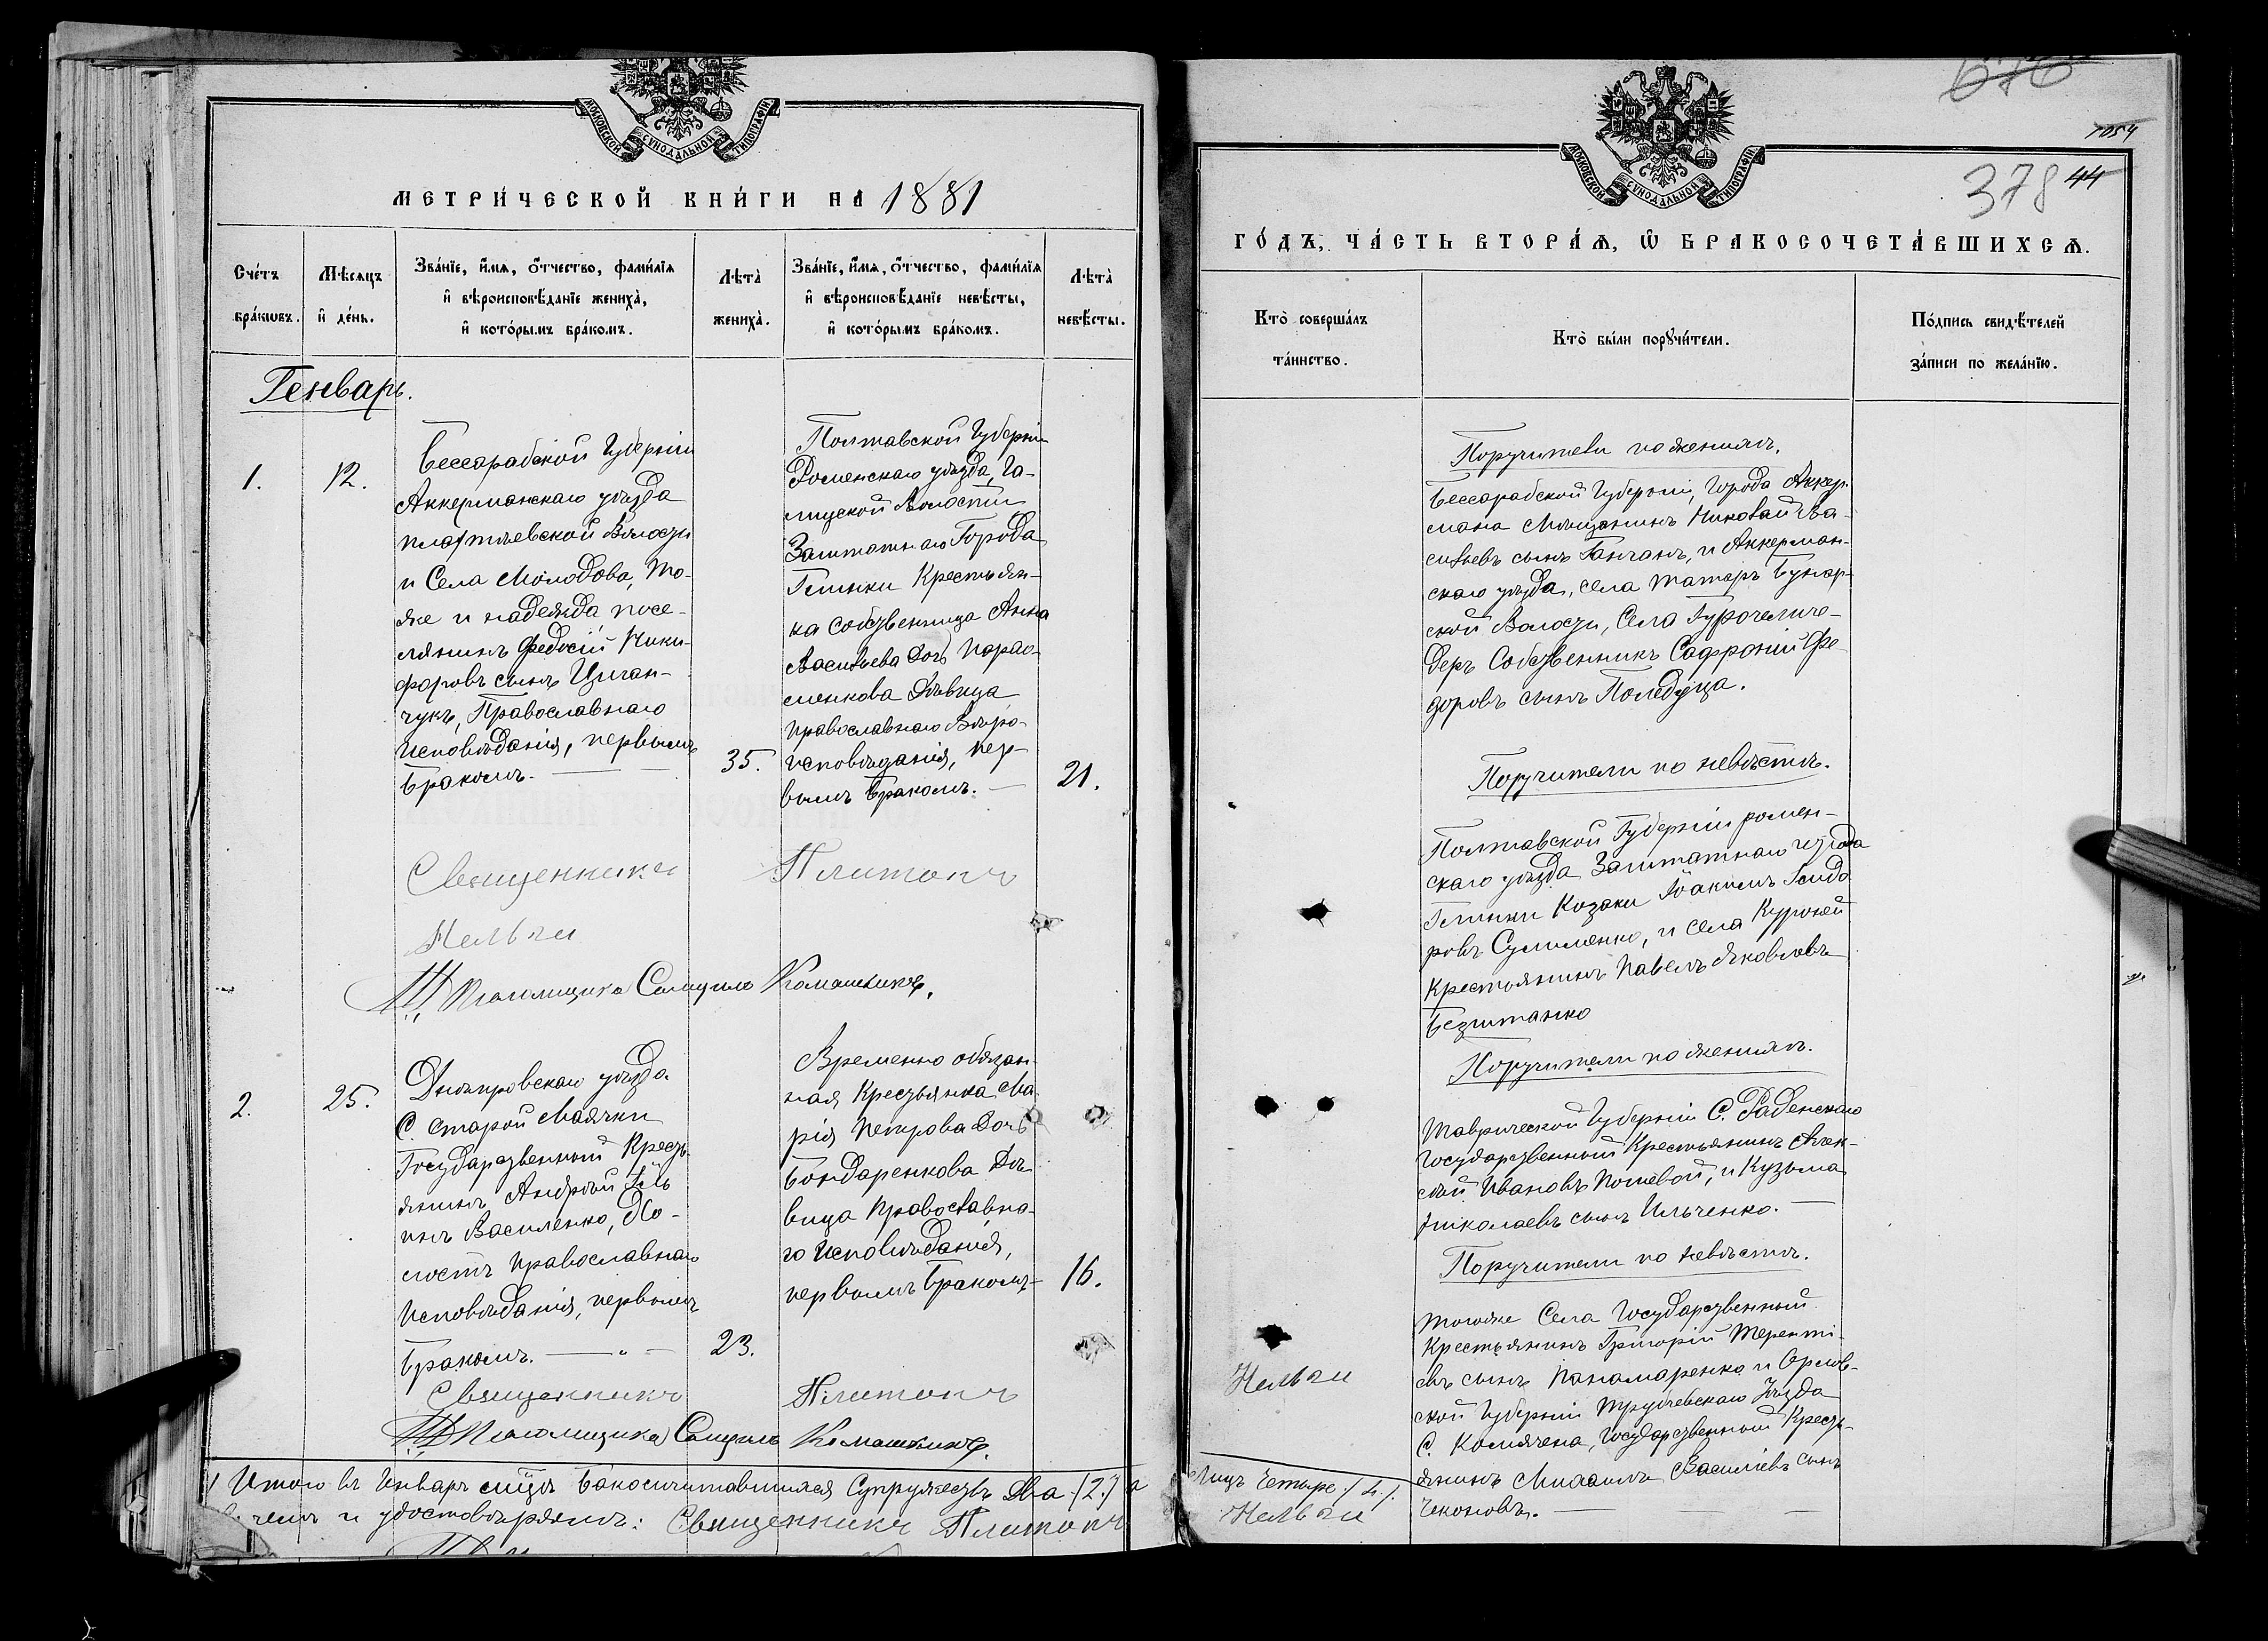 МОСКОВСКОЙ СѴНОДАЛЬНОЙ ТИПОГРАФІИ
МЕТРИ́ЧЕСКОЙ КНИ́ГИ НА 1881
Сче́тъ бра́кωвъ.
Мѣ́сяцъ и҆ де́нь.
Зва́нїе, и҆́мѧ, ѻ҆́тчество, фами́лїѧ
и҆ вѣроисповѣ́данїе жениха̀,
и҆ кото́рымъ бра́комъ.
Лѣта̀ жениха̀.
Зва́нїе, и҆́мѧ, ѻ҆́тчество, фами́лїѧ
и҆ вѣроисповѣ́данїе невѣ́сты,
и҆ кото́рымъ бра́комъ.
Лѣта̀ невѣ́сты.
Генварь.
1.
12.
Бессарабской Губерніи
Аккерманскаго уѣзда
волости
и Села Молодова, то-
же и надежда, посе-
лянинъ Федосій Ники-
форовъ сынъ Циган-
чукъ, Православнаго
исповѣданія, первымъ
бракомъ.
35.
Полтавской Губерніи
Роменскаго уѣзда, Га-
лицкой Волости
Заштатнаго Города
Глинки Крестьян-
ка собственница Анна
Васильева дочь Парас-
менкова дѣвица
православнаго вѣро-
исповѣданія, пер-
вымъ бракомъ.
21.
Священникъ Платонъ
Нельги
Псаломщикъ Самуилъ
2.
25.
Днѣпровскаго уѣзда
С. Старой Маячки
Государственный Кресть
янинъ Андрей Іль
инъ Василенко, Хо-
лостъ православнаго
исповѣданія, первымъ
бракомъ.
23.
Временно обязан-
ная Крестьянка Ма-
рія Петрова дочь
Бондаренкова дѣ-
вица Православна-
го исповѣданія,
первымъ бракомъ
16.
Священникъ Платонъ
Псаломщикъ Самуилъ
Итого въ Январѣ мцѣ Супружествъ два (2.) а
чемъ и удостовѣряемъ: Священникъ Платонъ
676
МОСКОВСКОЙ СѴНОДАЛЬНОЙ ТИПОГРАФІИ
1054
378 44
ГО́ДЪ, ЧА́СТЬ ВТОРА́Ѧ, Ѽ БРАКОСОЧЕТА́ВШИХСѦ.
Кто̀ соверша́лъ
та́инство.
Кто̀ бы́ли порꙋчи́тели.
По́дпись свидѣ́телей
за́писи по жела́нїю.
Поручители по женихѣ.
Бессарабской Губерніи, Города Аккер-
мана Мѣщанинъ Николай Ва-
сильевъ сынъ Ганчанъ, и Аккерман-
скаго уѣзда, села Татаръ Бунар-
ской Волости, Села Гурочеличе-
деръ Собственникъ Софроній Фе-
доровъ сынъ Поледуца.
Поручители по невѣстѣ.
Полтавской Губерніи ромен-
скаго уѣзда Заштатнаго города
Глинки Козаки Іоакимъ Ісидо
ровъ Сулименко, и села Курочей
Крестьянинъ Павелъ Яковлевъ
Безштанко
Поручители по женихѣ.
Таврической Губерніи С. Раденскаго
Государственный Крестьянинъ Алек-
сѣй Ивановъ Полевой, и Кузьма
Николаевъ сынъ Ильченко.
Поручители по невѣстѣ.
Тогоже Села Государственный
Крестьянинъ Григорій Теренті-
евъ сынъ Панамаренко и Орлов-
ской Губерніи Трубчевскаго Уѣзда
С. Государственный Кресть-
янинъ Михаилъ Василіевъ сынъ
Чеконовъ.
Нельги
лицъ четыре (4).
Нельги